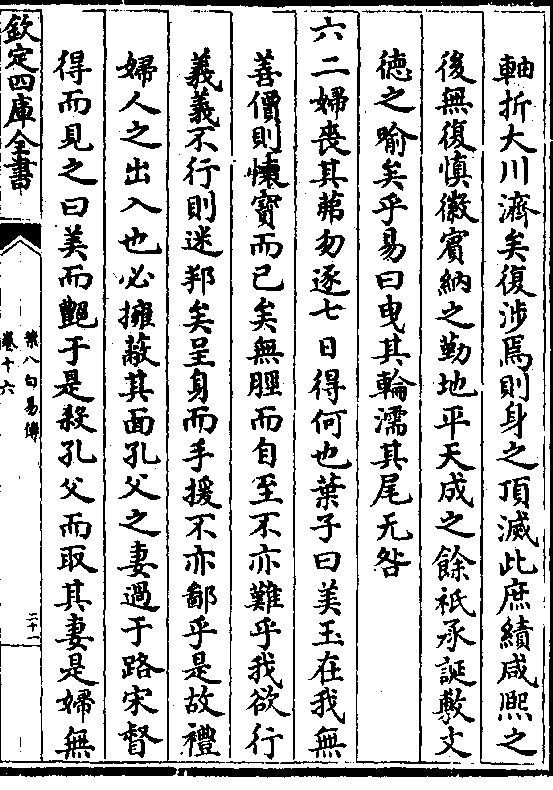 軸折大川濟矣復涉焉則身之頂滅此庶績咸熙之
後無復慎徽賓納之勤地平天成之餘祇承誕敷文
徳之喻矣乎易曰曳其輪濡其尾无咎
六二婦喪其茀勿逐七日得何也葉子曰美玉在我無
善價則懐寳而已矣無脛而自至不亦難乎我欲行
義義不行則迷邦矣呈身而手援不亦鄙乎是故禮
婦人之出入也必擁蔽其面孔父之妻過于路宋督
得而見之曰美而艶于是殺孔父而取其妻是婦無
欽定四庫全書
葉八白易傳
卷十六
三十二